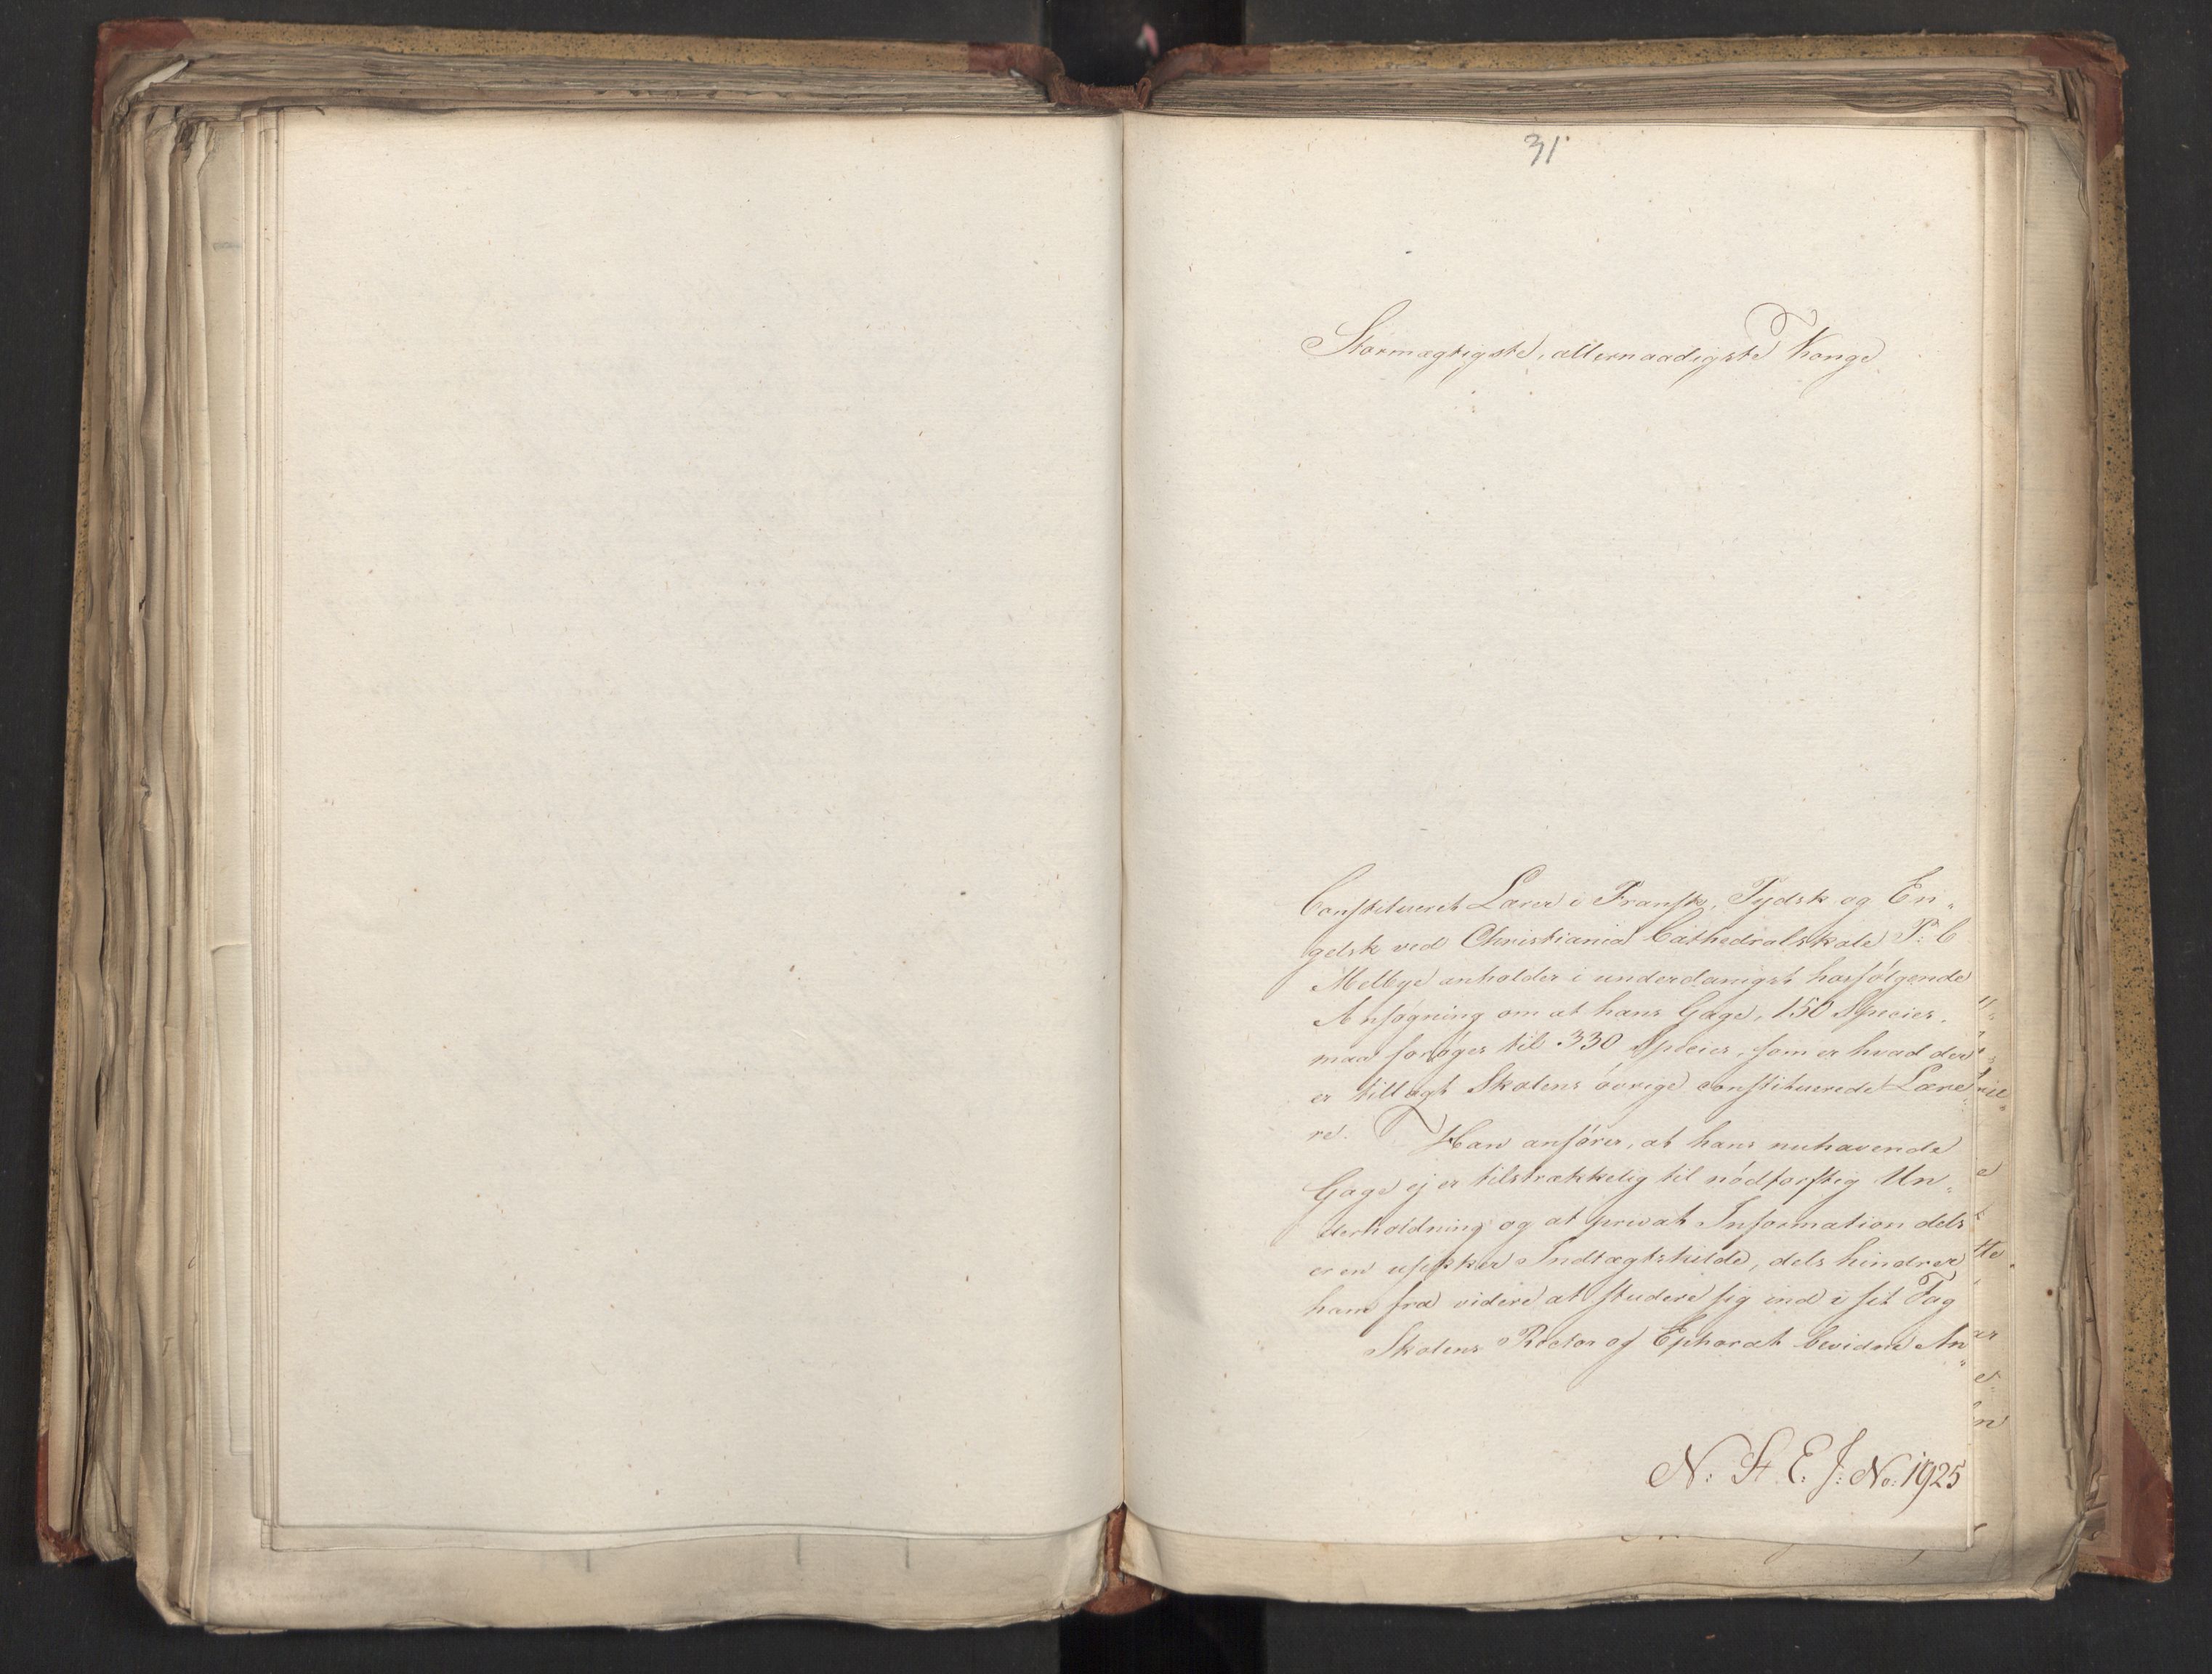 31
Stormægtigste, allernaadigste Konge
Constitueret Lærer i Fransk, Tydsk og En„
gelsk ved Christiania Cathedralskole P: C
Melbye anholder i underdanigst hosfølgende
Ansøgning om at hans Gage, 150 Species,
maa forøges til 330 Species, som er hvad der
er tillagt Skolens øvrige constituerede Lære„
re. Han anfører, at hans nuhavende
Gage ej er tilstrækkelig til nødtørftig Un„
derholdning og at privat Information dels
er en usikker Indtægtskilde, dels hindrer
ham fra videre at studere sig ind i sit Fag
Skolens Rector og Ephorat bevidne An„
N: St. E. J: No: 1925